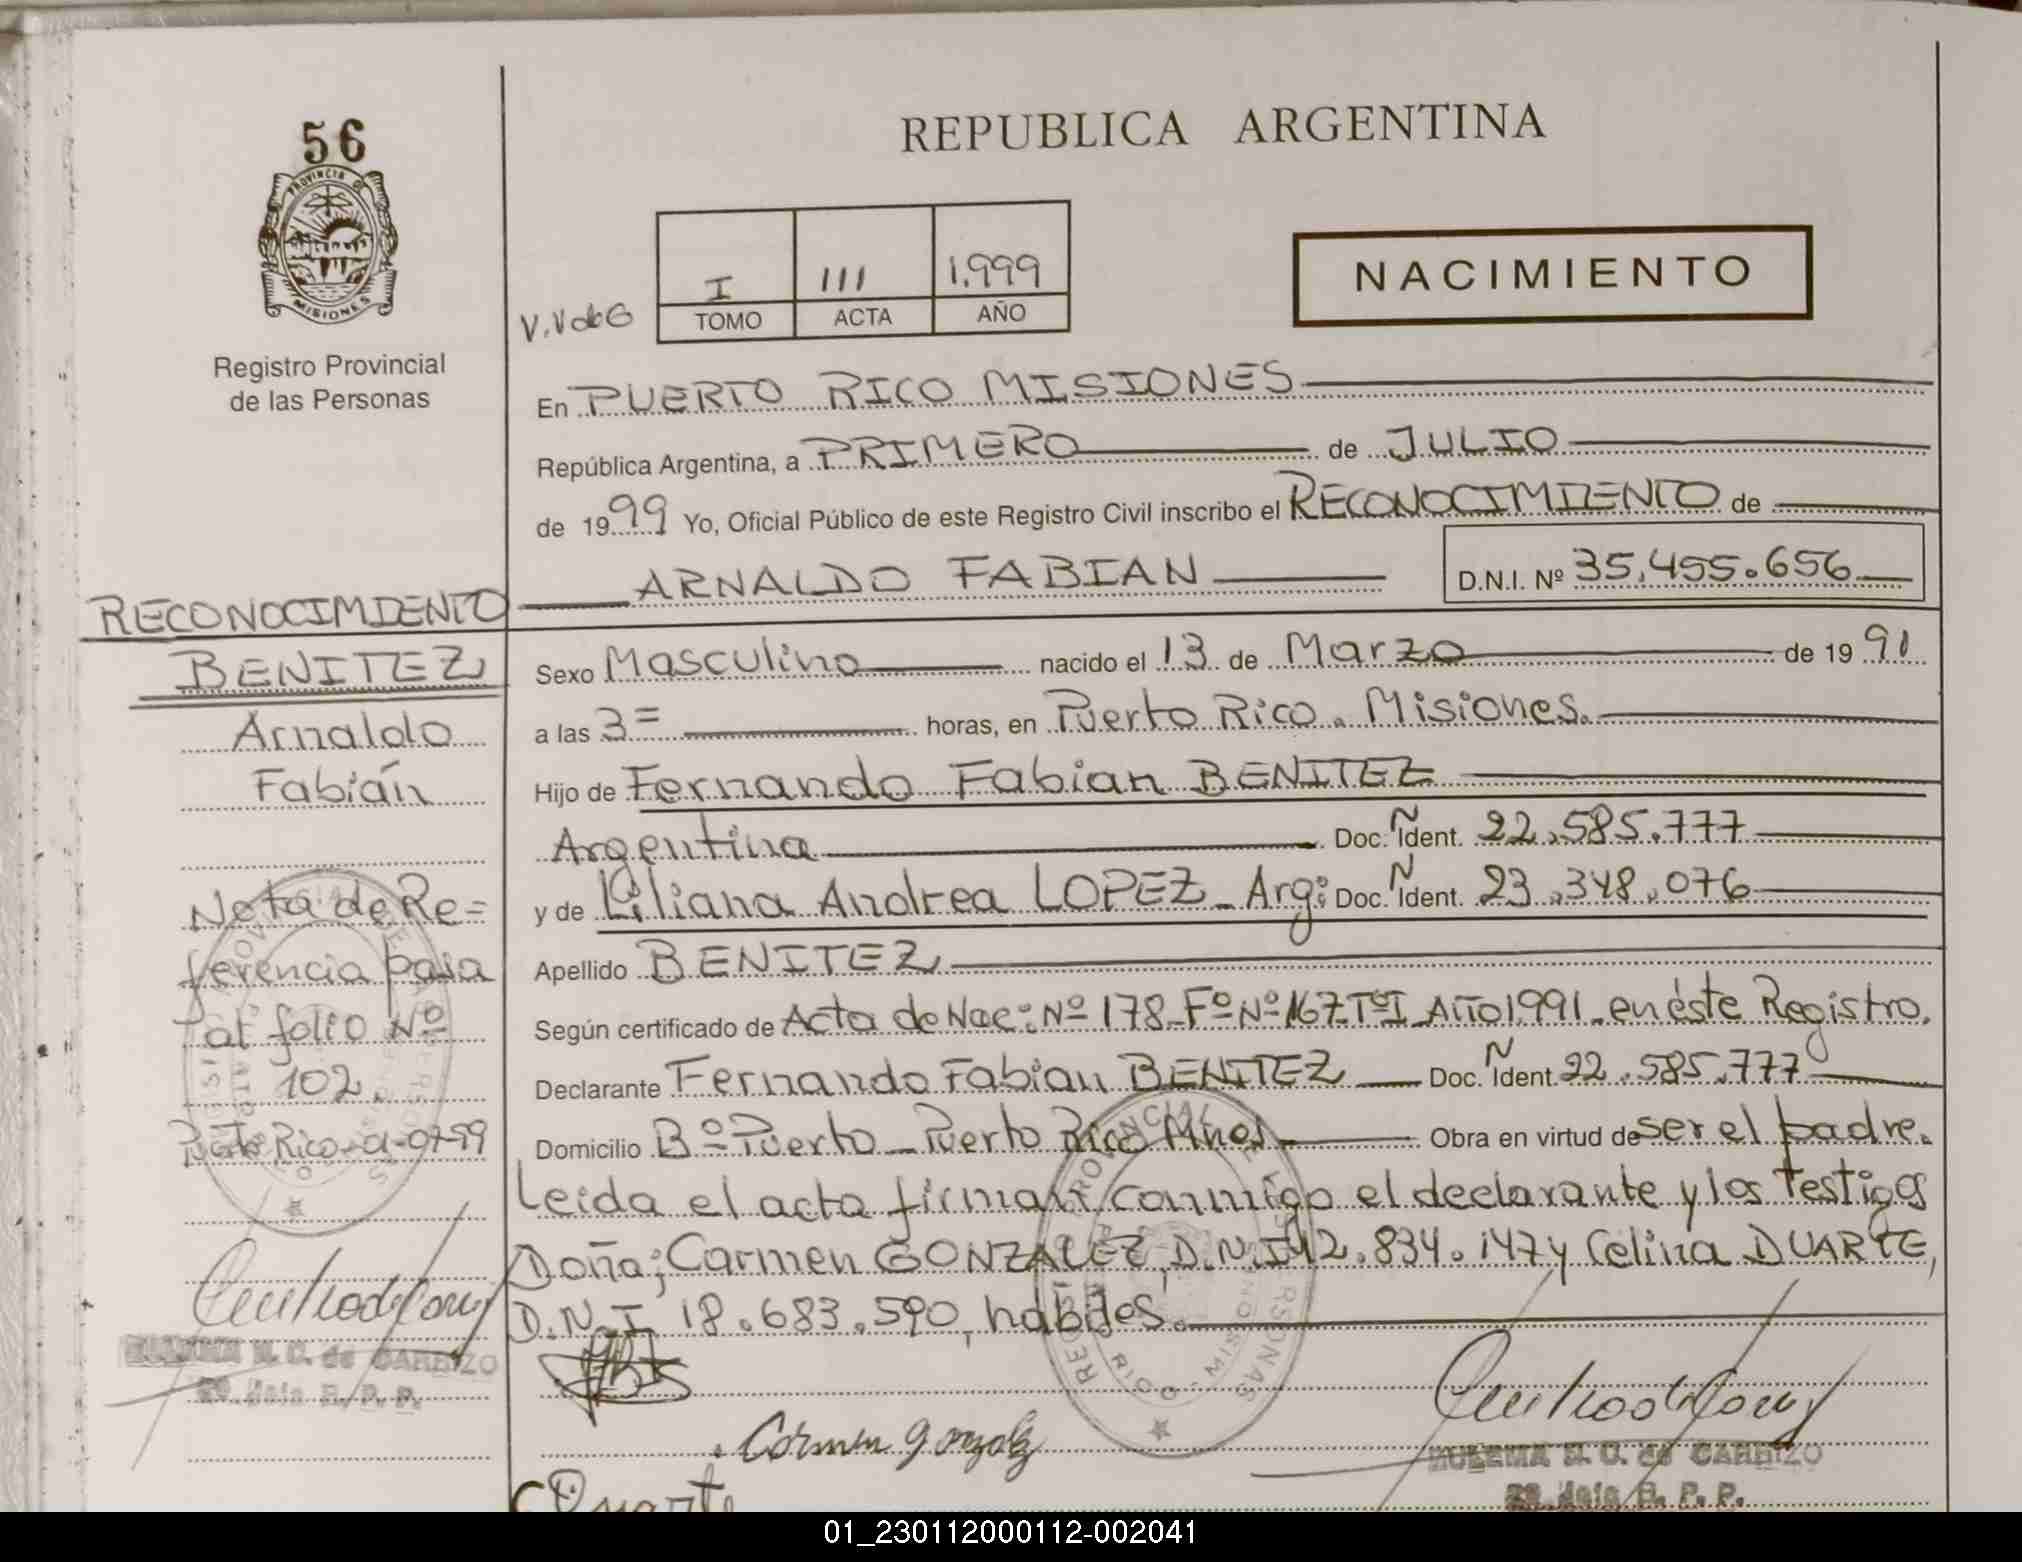 56
PROVINCIA DE
MISIONES
Registro Provincial
de las Personas
REPUBLICA ARGENTINA
I 111 1.999
TOMO ACTA AÑO
NACIMIENTO
En PUERTO RICO MISIONES
República Argentina, a PRIMERO de JULIO
de 1999 Yo, Oficial Público de este Registro Civil inscribo el RECONOCIMIENTO de
ARNALDO FABIAN D.N.I. Nº 35.455.656
Sexo Masculino nacido el 13 de Marzo de 1991
a las 3= horas, en Puerto Rico. Misiones.
Hijo de Fernando Fabian BENITEZ
Argentina Doc. Ñ Ident. 22.585.777
y de Liliana Andrea LOPEZ_Arg: Doc. Ñ Ident. 23.348.076
Apellido BENITEZ
Según certificado de Acta de Nac: Nº 178_Fº Nº 167_TºI_AÑO 1991_en éste Registro.
Declarante Fernando Fabian BENITEZ Doc. Ñ Ident. 22.585.777
Domicilio Bº Puerto_Puerto Rico Mnes Obra en virtud de ser el padre.
Leida el acta firman conmigo el declarante y los Testigos
Doña; Carmen GONZALEZ, D.N.I 12.834.147 y Celina DUARTE,
D.N.I 18.683.590, habiles.
Carmen Gonzalez
Duarte
de CARRIZO
R. P. P.
RECONOCIMIENTO
BENITEZ
Arnaldo
Fabián
Nota de Re=
ferencia pasa
al folio Nº
102.
Pueto Rico-01-07-99
de CARRIZO
R. P. P.
01_230112000112-002041